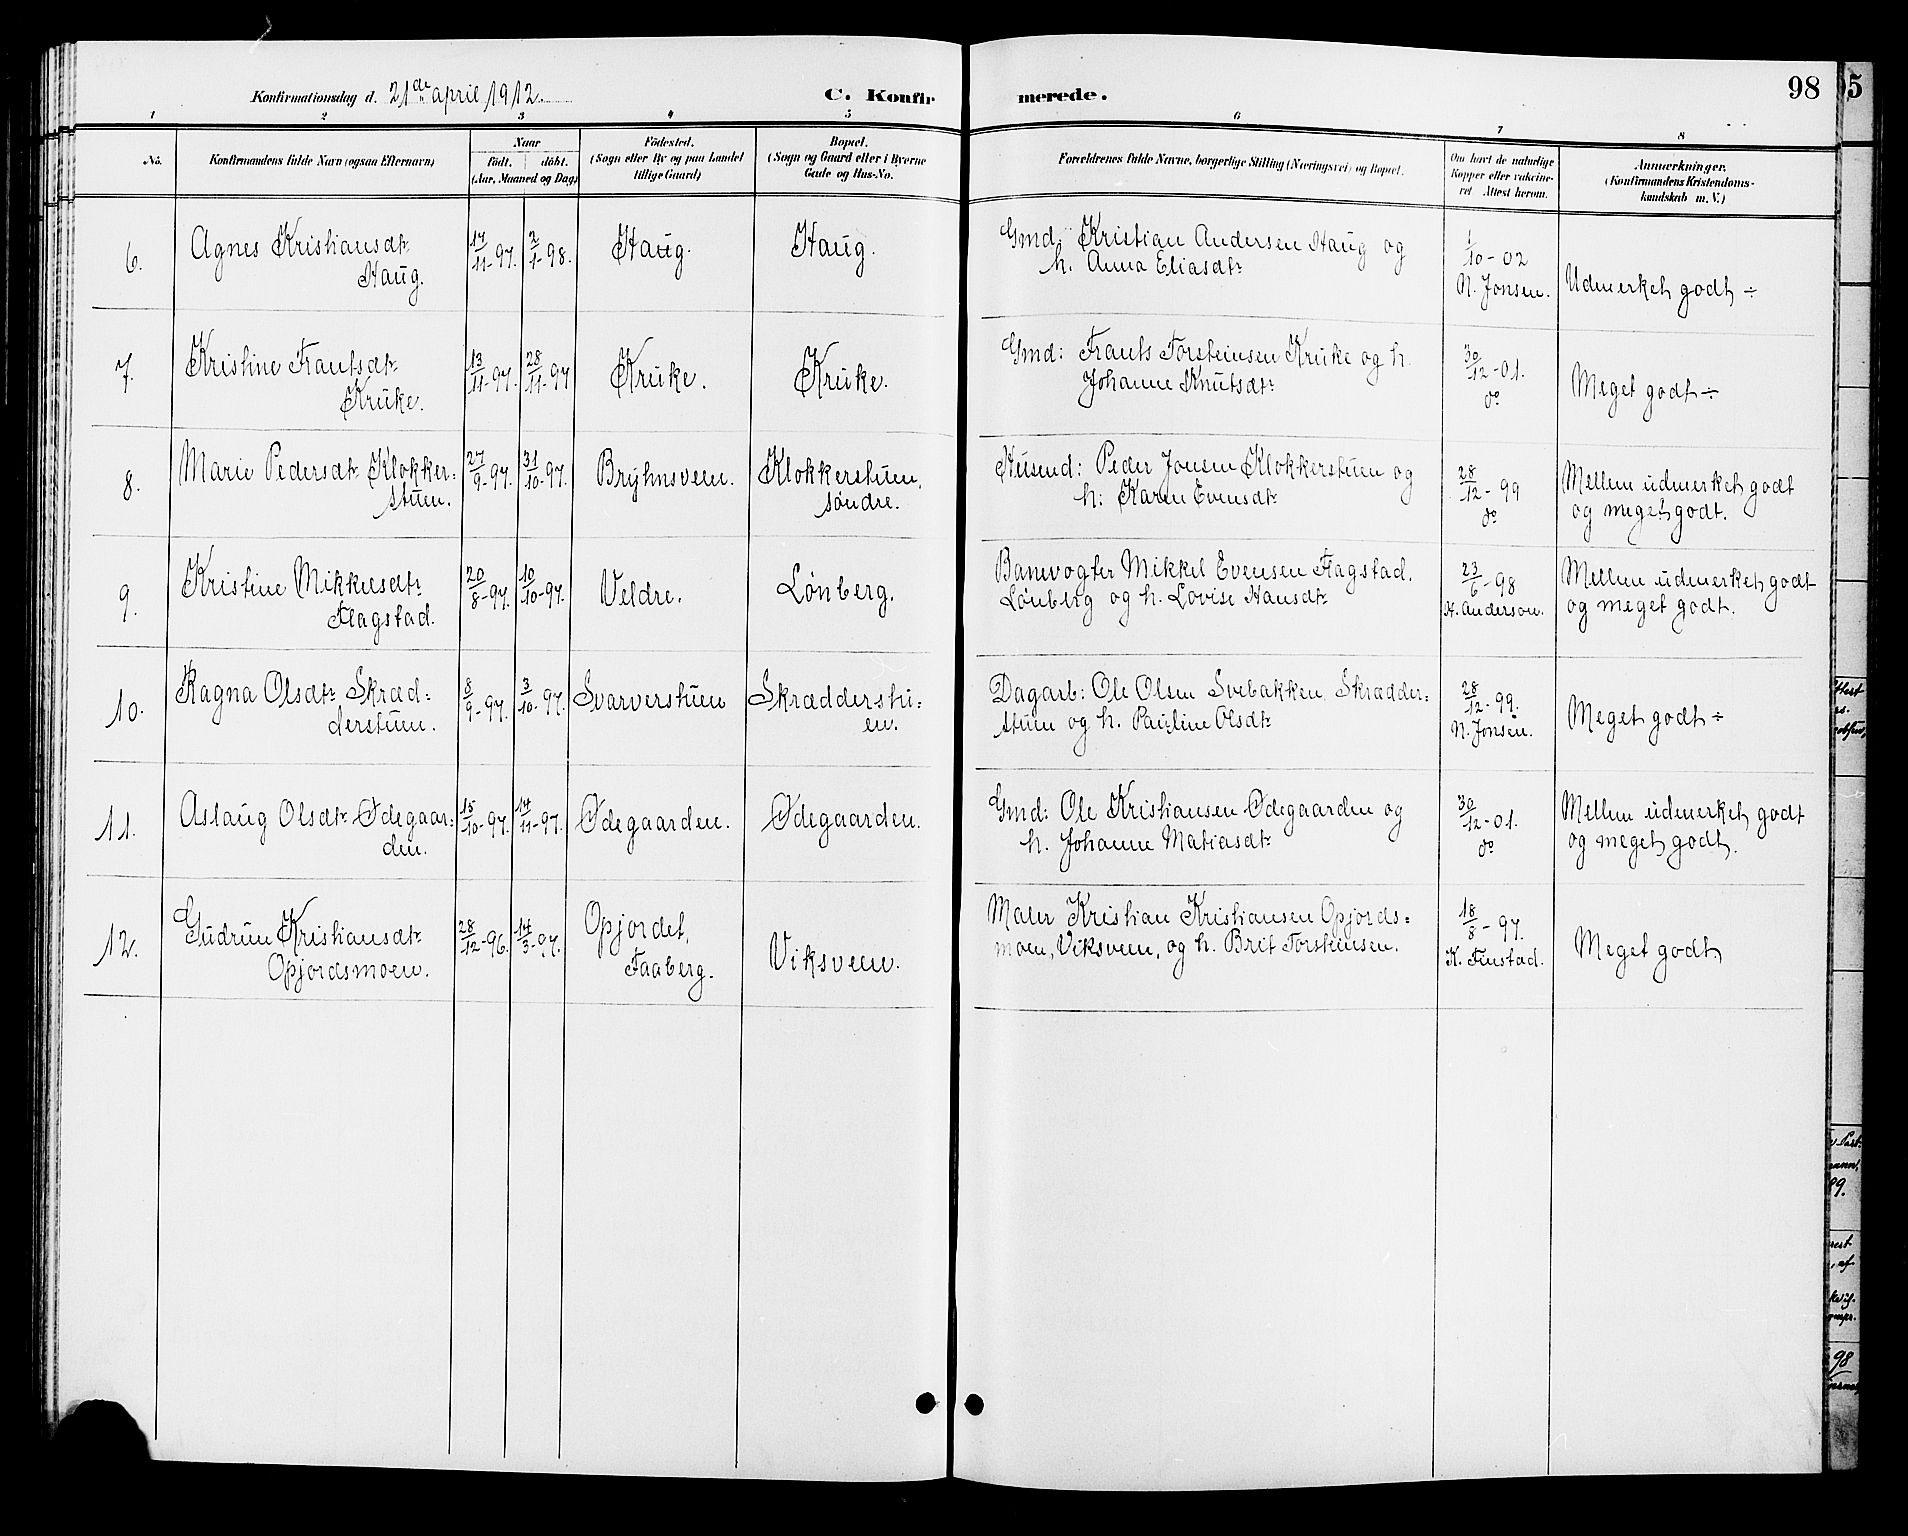 Konfirmationsdag d. 21de april 1912. C. Konfirmerede. 98
1 2 3 4 5 6 7 8
No. Konfirmandens fulde Navn (ogsaa Efternavn)
Naar
født. døbt.
(Aar, Maaned og Dag)
Fødested.
(Sogn eller By og paa Landet
tillige Gaard)
Bopæl.
(Sogn og Gaard eller i Byerne
Gade og Hus-No.
Forældrenes fulde Navne, borgerlige Stilling (Næringsvei) og Bopæl.
Om havt de naturlige
Kopper eller vakcine-
ret Attest herom.
Anmerkninger.
(Konfirmandens Kristendoms-
kundskab m. V.)
6. Agnes Kristiansdtr
Haug.
17/11-97. 2/1-98. Haug. Haug.
Gmd: Kristian Andersen Haug og
h. Anna Eliasdtr
1/10-02
N. Jonsen.
Udmerket godt ÷
7. Kristine Frantsdtr
Kruke.
13/11-97. 28/11-97 Kruke. Kruke.
Gmd: Frants Torsteinsen Kruke og h.
Johanne Knutsdtr
30/12-01.
do
Meget godt ÷
8. Marie Pedersdtr Klokker=
stuen.
27/9-97. 31/10-97. Bryhnsveen. Klokkerstuen,
søndre.
Husmd: Peder Jonsen Klokkerstuen og
h: Karen Evensdtr
28/12-99
do
Mellem udmerket godt
og meget godt.
9. Kristine Mikkelsdtr
Flagstad.
20/8-97. 10/10-97. Veldre. Lønberg.
Banevogter Mikkel Evensen Flagstad,
Lønberg og h. Lovise Hansdtr
23/6-98
H. Anderson.
Mellem udmerket godt
og meget godt.
10. Ragna Olsdtr Skræd=
derstuen.
8/9-97. 3/10-97. Svarverstuen Skrædderstu=
en.
Dagarb: Ole Olsen Svebakken, Skrædder=
stuen og h. Pauline Olsdtr
28/12-99.
N. Jonsen.
Meget godt ÷
11. Aslaug Olsdtr Ødegaar=
den.
15/10-97. 14/11-97. Ødegaarden. Ødegaarden.
Gmd: Ole Kristiansen Ødegaarden og
h. Johanne Matiasdtr
30/12-01.
do
Mellem udmerket godt
og meget godt.
12. Gudrun Kristiansdtr
Opjordsmoen.
28/12-96. 14/3-97. Opjordet,
Faaberg.
Viksveen.
Maler Kristian Kristiansen Opjords=
moen, Viksveen, og h. Brit Torsteinsen.
18/8-97.
K. Finstad.
Meget godt